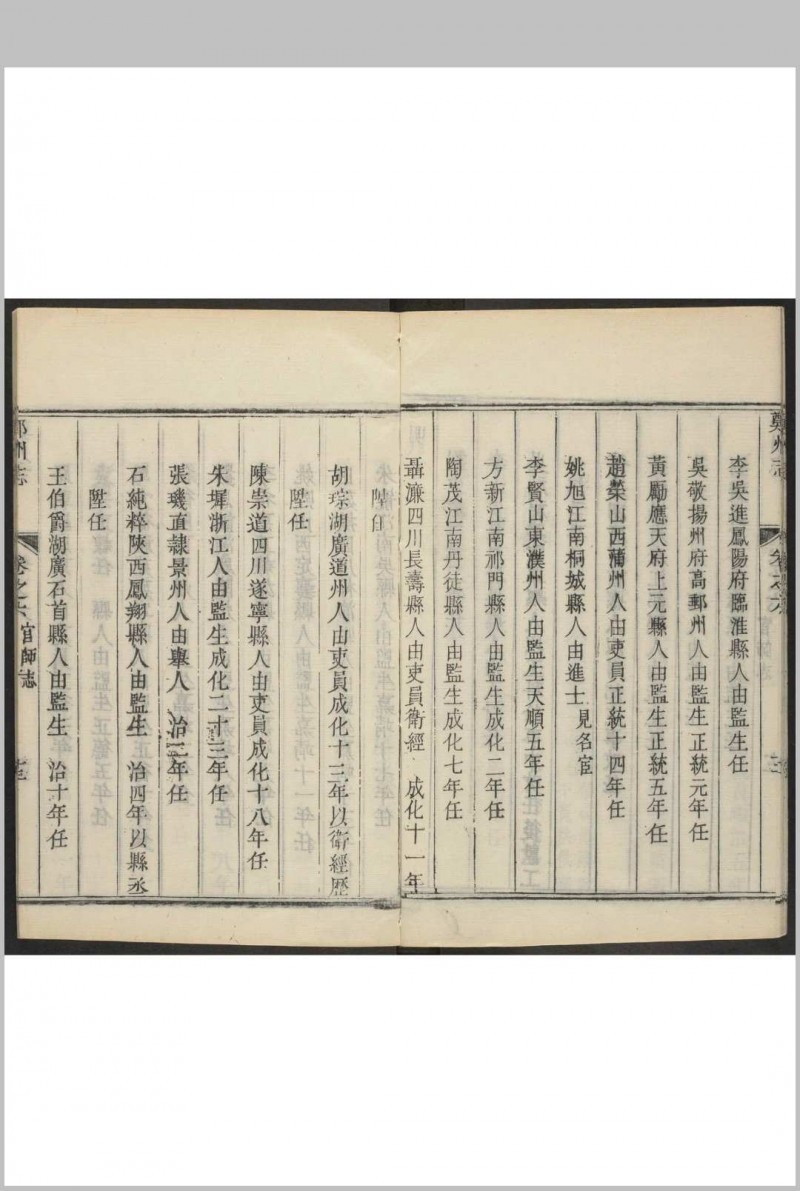 鄭州志
卷之六
李吳進鳳陽府臨淮縣人由監生任
吳敬揚州府高郵州人由監生正統元年任
黃勵應天府上元縣人由監生正統五年任
趙榮山西蒲州人由吏員正統十四年任
姚旭江南桐城縣人由進士見名宦
李賢山東濮州人由監生天順五年任
方新江南祁門縣人由監生成化二年任
陶茂江南丹徒縣人由監生成化七年任
聶濂四川長壽縣人由吏員衛經 成化十一年
陞任
胡琮湖廣道州人由吏員成化十三年以衛經歷
陞任
陳崇道四川遂寧縣人由吏員成化十八年任
朱墀浙江人由監生成化二十三年任
張璣直隸景州人由舉人 治二年任
石純粹陝西鳳翔縣人由監生 治四年以縣丞
陞任
王伯爵湖廣石首縣人由監生 治十年任
州志
卷之六
官師志